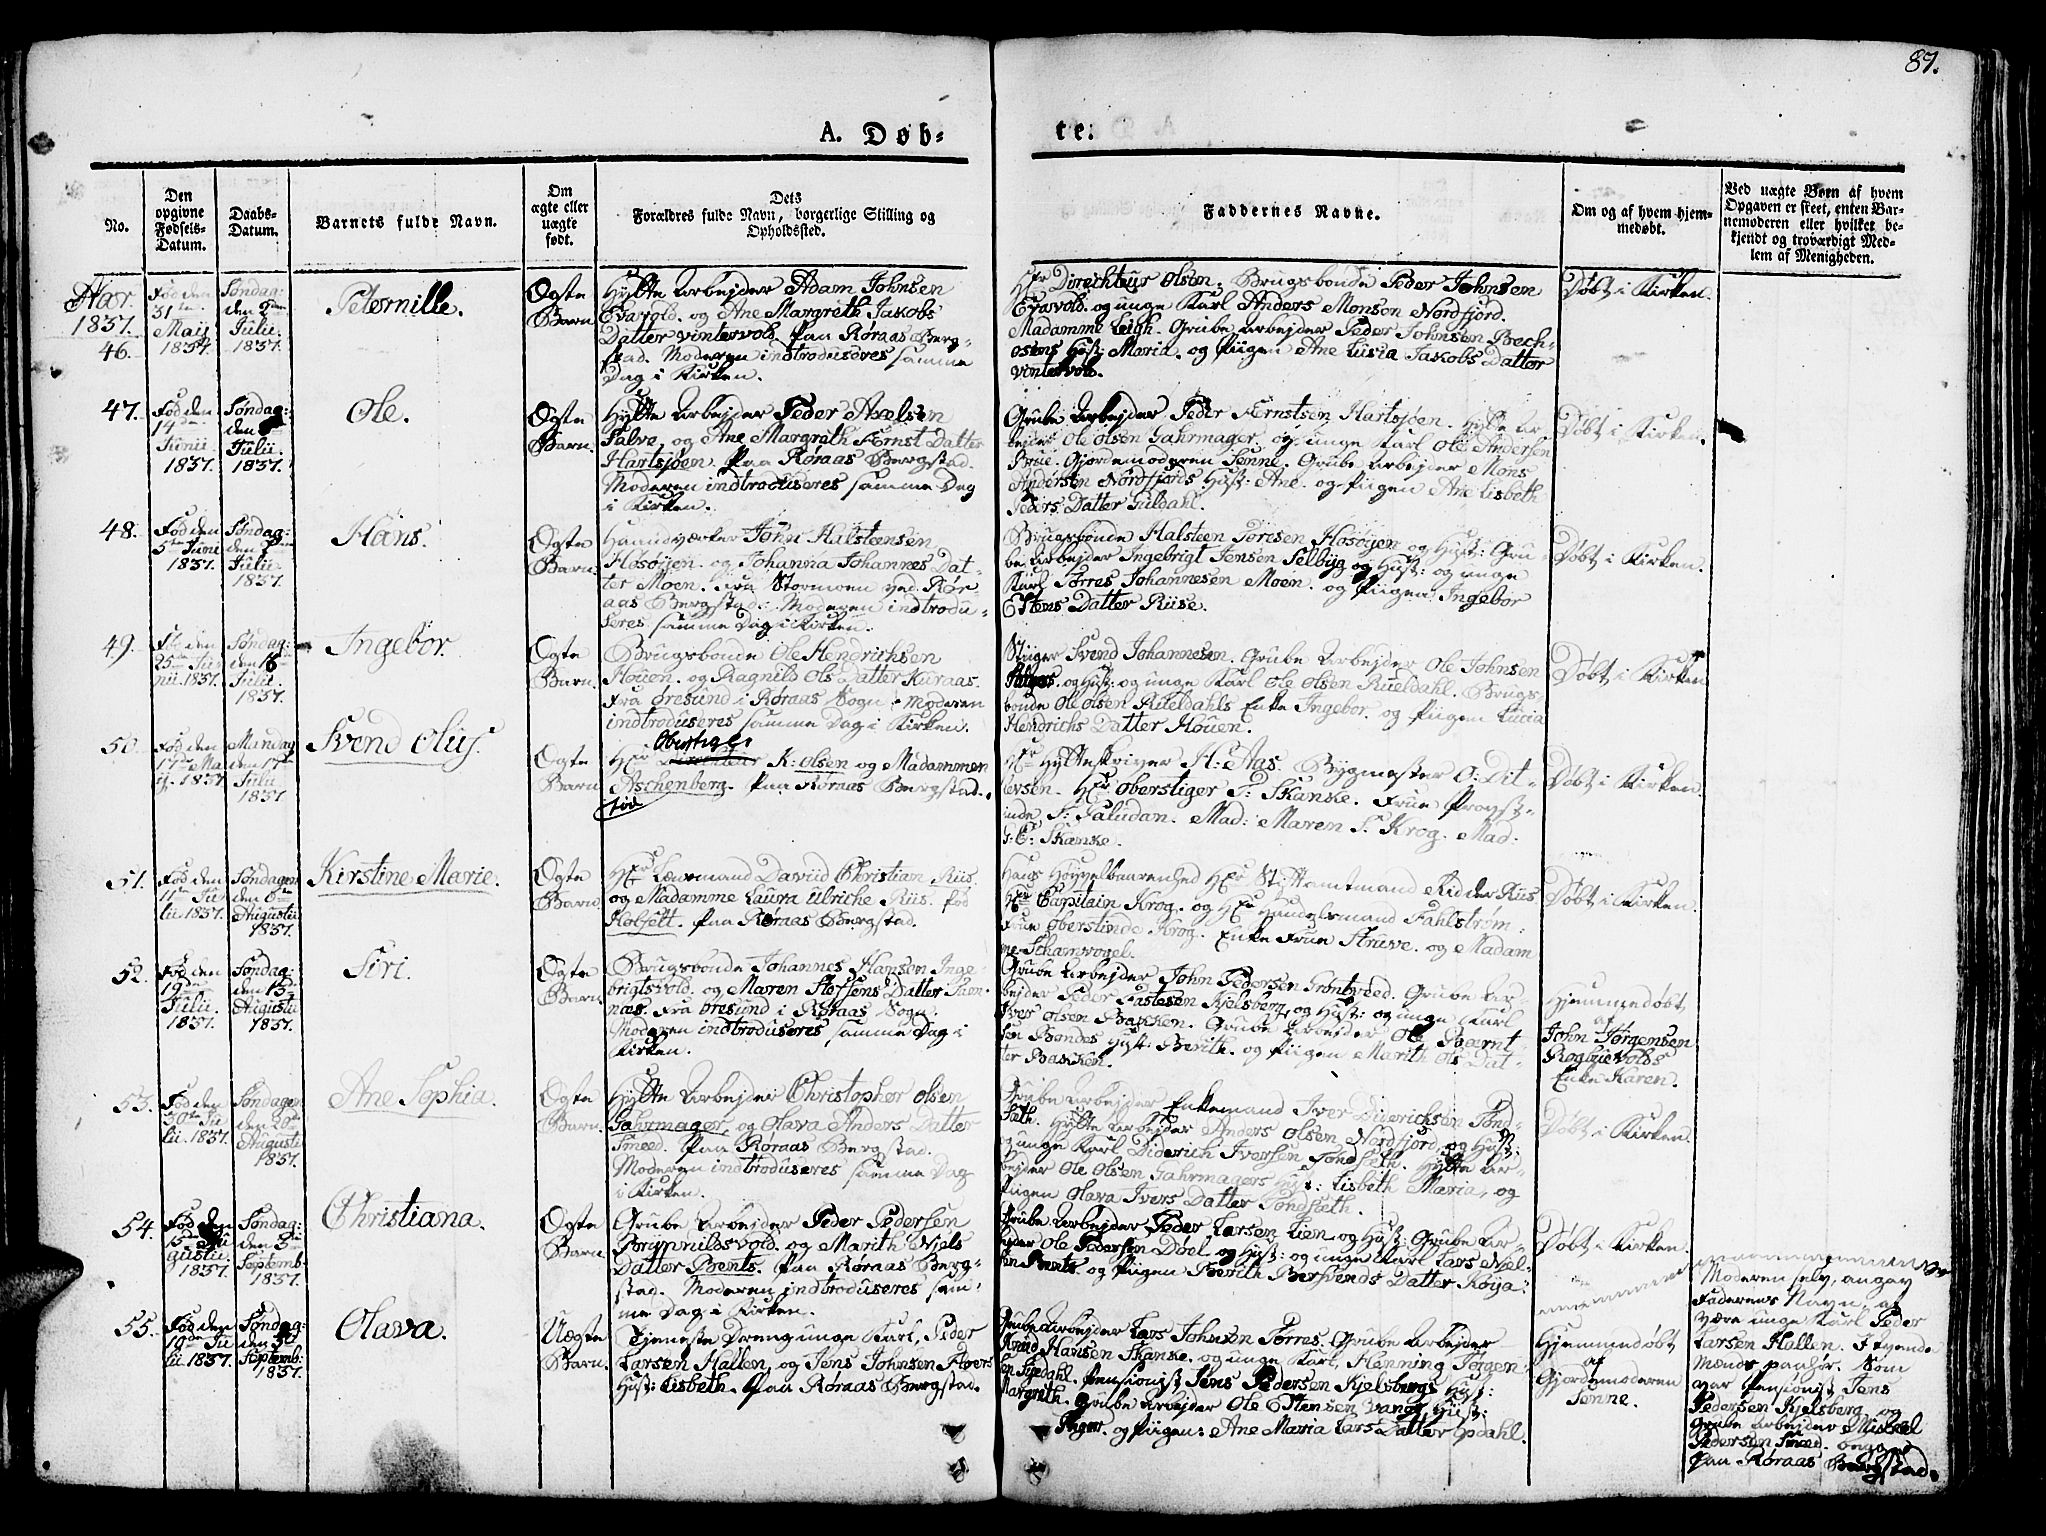 87.
A. Døb-
te:
No.
Den
opgivne
Fødsels-
Datum.
Daabs-
Datum.
Barnets fulde Navn.
Om
ægte eller
uægte
født.
Dets
Forældres fulde Navn, borgerlige Stilling og
Opholdssted.
Faddernes Navne.
Om og af hvem hjem-
medøbt.
Ved uægte Børn af hvem
Opgaven er skeet, enten Bar-
nemoderen eller hvilket be-
kjendt og troværdigt Med-
lem af Menigheden.
Aar
1837.
46.
Fød den
31te
Maii
1837.
Søndag:
den 2den
Julii.
1837.
Peternille.
Ægte
Barn
Hytte Arbejder Adam Johnsen
Evavold. og Ane Margreth Jakobs
Datter Vintervold. Paa Røraas Berg-
stad. Moderen indtroduseres samme
Dag i Kirken.
Hr Direchteur Olsen. Brugsbonde Peder Johnsen
Evavold. og unge Karl Anders Monsen Nordfjord.
Madamme Leigh. Grube Arbejder Peder Johnsen Bech-
osens Hust: Maria. og Piigen Ane Lusia Jakobs Datter
Vintervold.
Døbt i Kirken.
47.
Fød den
14de
Junii
1837.
Søndag:
den
Julii.
1837.
Ole.
Ægte
Barn.
Hytte Arbejder Peder Axelsen
Salve, og Ane Margreth Fernst Datter
Hartsjøen. Paa Røraas Bergstad.
Moderen indtroduseres samme Dag
i Kirken.
Grube Arbejder Peder Fernstsen Hartsjøen. Hytte Ar
bejder Ole Olsen Gahrmager, og unge Karl Ole Andersen
Brue. Gjordemoderen Lenne. Grube Arbejder Mons
Andersen Nordfjords Hust: Ane. og Piigen Ane Lisbeth
Peders Datter Guldahl.
Døbt i Kirken.
48.
Fød den
5te Juni
1837.
Søndag:
den 2den
Julii
1837.
Hans.
Ægte
Barn.
Haandværker John Halsteensen
Hosøijen. og Johanna Johannes Dat-
ter Moen. Fra Stormoen ved Rør-
aas Bergstad: Moderen indtrodu-
seres samme Dag i Kirken.
Brugsbonde Halsteen Toresen Hosøijen og Hust: Gru-
be Arbejder Ingebrigt Jensen Selbyg og Hust: og unge
Karl Torres Johannesen Moen. og Piigen Ingebor
Estens Datter Riise.
Døbt i Kirken.
49.
Fød den
25de Ju
nii. 1837.
Søndag:
den 16de
Julii.
1837.
Ingebor.
Ægte
Barn.
Brugsbonde Ole Hendrichsen
Houen. og Ragnild Ols Datter Kuraas.
Fra Øresund i Røraas Sogn. Moderen
indtroduseres samme Dag i Kirken.
Stiiger Svend Johannesen. Grube Arbejder Ole Johnsen
og Hust: og unge Karl Ole Olsen Rueldahl. Brugs-
bonde Ole Olsen Rueldahls Enke Ingebor. og Piigen Lucia
Hendrichs Datter Houen.
Døbt i Kirken
50.
Fød den
17de Ma
ij. 1837
Mandag
den 17de
Julii
1837.
Svend Olus.
Ægte
Barn
Oberstiger
Hr K: Olsen og Madammen
Aschenberg. Paa Røraas Bergstad.
fød
Hr Hytteskriver H: Aas. Bygmester O: Dit-
levsen. Hr Oberstiger P: Skanke. Frue Provst-
inde S: Paludan. Mad: Maren S. Krog. Mad:
G: E: Skanke.
Døbt i Kirken.
51.
Fød den
11te Ju
lii 1837.
Søndagen
den 6te
Augustii
1837.
Kirstine Marie.
Ægte
Barn.
Hr Lænsmand David Christian Riis
og Madamme Laura Ulriche Riis. fød
Kolseth. Paa Røraas Bergstad.
Hans Høyvelbaarenhed Hr Stiftamtmand Ridder Riis
Hr Capitain Krog. og Hr Handelsmand Fahlstrøm:
Frue Oberstinde Krog. Enke Frue Struve. og Madam
me Scharnvogel.
Døbt i Kirken.
52.
Fød den
19de
Julii.
1837.
Søndag:
den 13de
Augustii
1837.
Siri.
Ægte
Barn.
Brugsbonde Johannes Hansen Inge-
brigtsvold. og Maren Steffens Datter
næs. Fra Øresund i Røraas Sogn.
Moderen indtroduseres samme Dag i
Kirken.
Grube Arbejder John Pedersen Grøntveed. Grube Ar-
bejder Peder Fastesen Kjelsberg, og Hust: og unge Karl
Iver Olsen Bakken. Grube Arbejder Ole Bærnt
sen Bondes Hust: Berith. og Piigen Marith Ols Dat-
ter Bakken.
Hjemmedøbt
af
John Jørgensen
Rogbjevolds
Enke Karen.
53.
Fød den
30te Ju
lii. 1837.
Søndagen
den 20de
Augustii
1837.
Ane Sophia.
Ægte
Barn.
Hytte Arbejder Christopher Olsen
Gahrmager, og Olava Anders Datter
Smeed. Paa Røraas Bergstad.
Moderen indtroduseres samme Dag
i Kirken.
Grube Arbejder Enkemand Iver Diderichsen Tønd-
sæth. Hytte Arbejder Anders Olsen Nordfjord, og Hust:
og unge Karl Diderich Iversen Tøndsæth. Hytte Ar-
bejder Ole Olsen Gahrmagers Hust: Lisbeth Maria, og
Piigen Olava Ivers Datter Tøndsæth.
Døbt i Kirken.
54.
Fød den
15de Au
gustii.
1837.
Søndag:
den 3die
Septemb:
1837.
Christiana.
Ægte
Barn.
Grube Arbejder Peder Pedersen
Brynnildsvold. og Marith Niels
Datter Bents. Paa Røraas Berg-
stad. Moderen indtroduseres sam-
me Dag i Kirken.
Grube Arbejder Peder Larsen Lien, og Hust: Grube Ar-
bejder Ole Pedersen Døel, og Hust: og unge Karl Lars Niel-
sen Bents. og Piigen Berith Bersvends Datter Køija:
Døbt i Kirken.
55.
Fød den
19de Ju
lii 1837.
Søndag:
den 3die
Septemb:
1837.
Olava.
Uægte
Barn.
Tjeneste Dreng unge Karl, Peder
Larsen Hallen, og Jens Johnsen Avers
Hust: Lisbeth. Paa Røraas Bergstad.
Grube Arbejder Lars Johnsen Torres. Grube Arbejder
Knud Hansen Skanke. og unge Karl, Henning Jørgen
sen Sijedahl. Pensionist Jens Pedersen Kjelsbergs Hust:
Margreth. Grube Arbejder Ole Estensen Vangs Hust:
Inger. og Piigen: Ane Maria Lars Datter Opdahl.
Hjemmedøbt
af
Gjordemoderen
Lenne.
Moderen selv, angav
Faderens Navn, at
være unge Karl Peder
Larsen Hallen. I tvende
Mænds paahør. Som
var Pensionist Jens
Pedersen Kjelsberg, og
Grube Arbejder Mikkel
Pedersen Smeed. begge
Paa Røraas Bergstad.